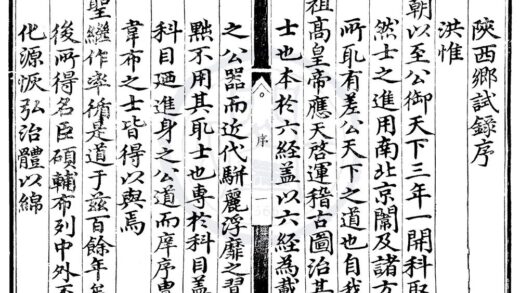 陝西鄉試録序
洪惟
朝以至公御天下三年一開科取
然士之進用南北京闈及諸方
所取有差公天下之道也自我
祖高皇帝應天啓運稽古圖治其
士也本於六経盖以六経為載
序
一
之公器而近代駢麗浮靡之習
㸃不用其取士也專於科目盖
科目廼進身之公道而庠序曹
韋布之士皆得以與焉
聖繼作率循是道于兹百餘年
後所得名臣碩輔布列中外
化源恢弘治體以綿